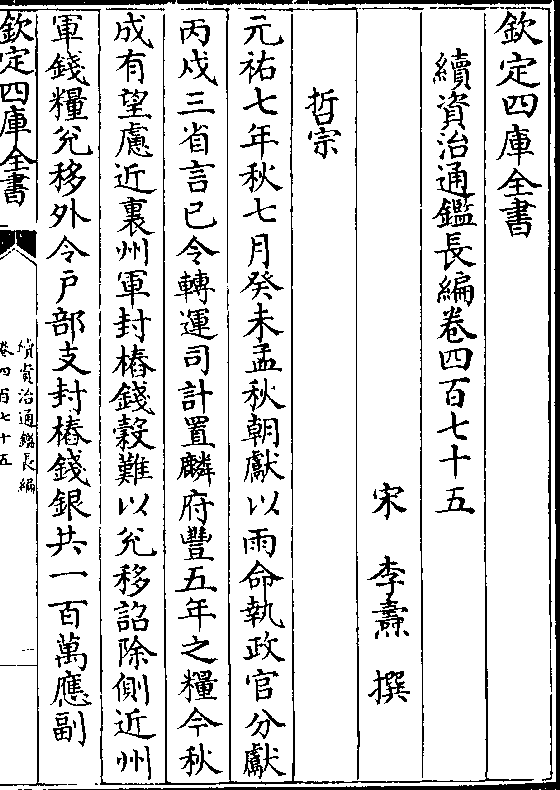 欽定四庫全書
續資治通鑑長編卷四百七十五
宋 李燾 撰
哲宗
元祐七年秋七月癸未孟秋朝獻以雨命執政官分獻
丙戌三省言已令轉運司計置麟府豐五年之糧今秋
成有望慮近裏州軍封樁錢穀難以兌移詔除側近州
軍錢糧兌移外令戶部支封樁錢銀共一百萬應副
欽定四庫全書
續資治通鑑長編
卷四百七十五
一